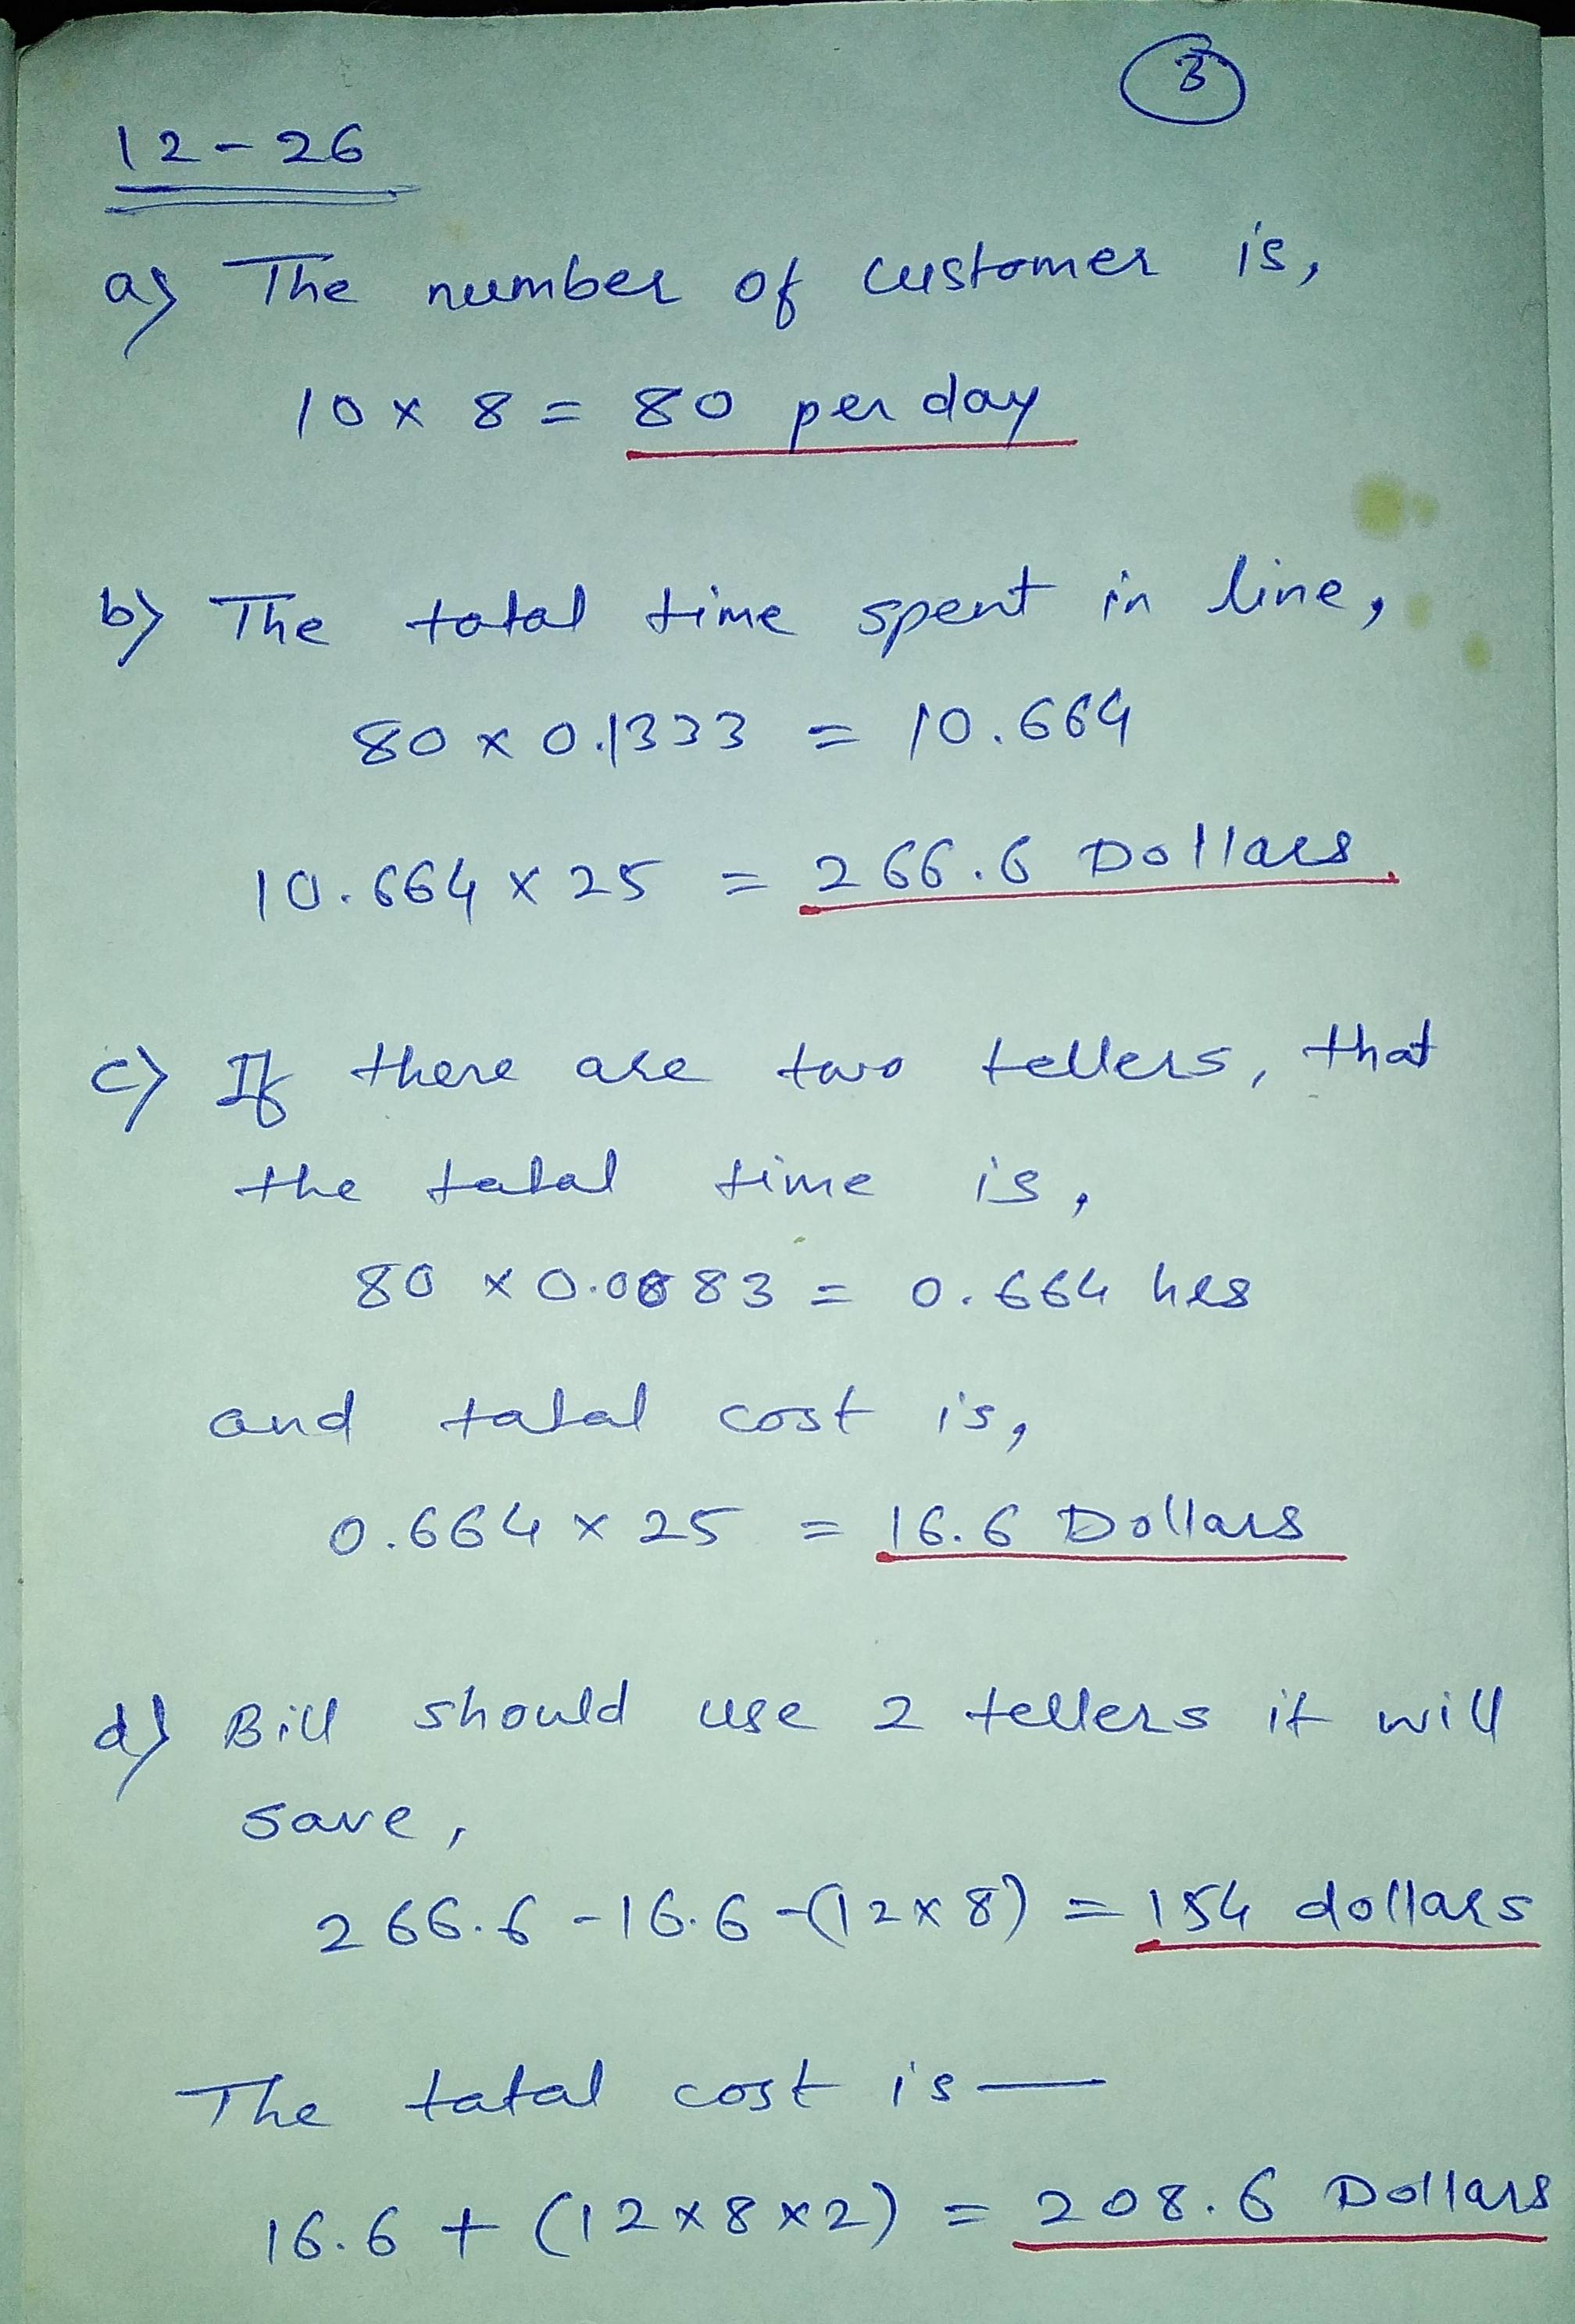 3
12-26
a) The number of customer is,
10 x 8 = 80 per day
b) The total time spent in line,
80 x 0.1333 = 10.664
10.664 x 25 = 266.6 Dollars.
c) If there are two tellers, that
the total time is,
80 x 0.0083 = 0.664 hrs
and total cost is,
0.664 x 25 = 16.6 Dollars
d) Bill should use 2 tellers it will
save,
266.6 - 16.6 - (12 x 8) = 154 dollars
The total cost is —
16.6 + (12 x 8 x 2) = 208.6 Dollars